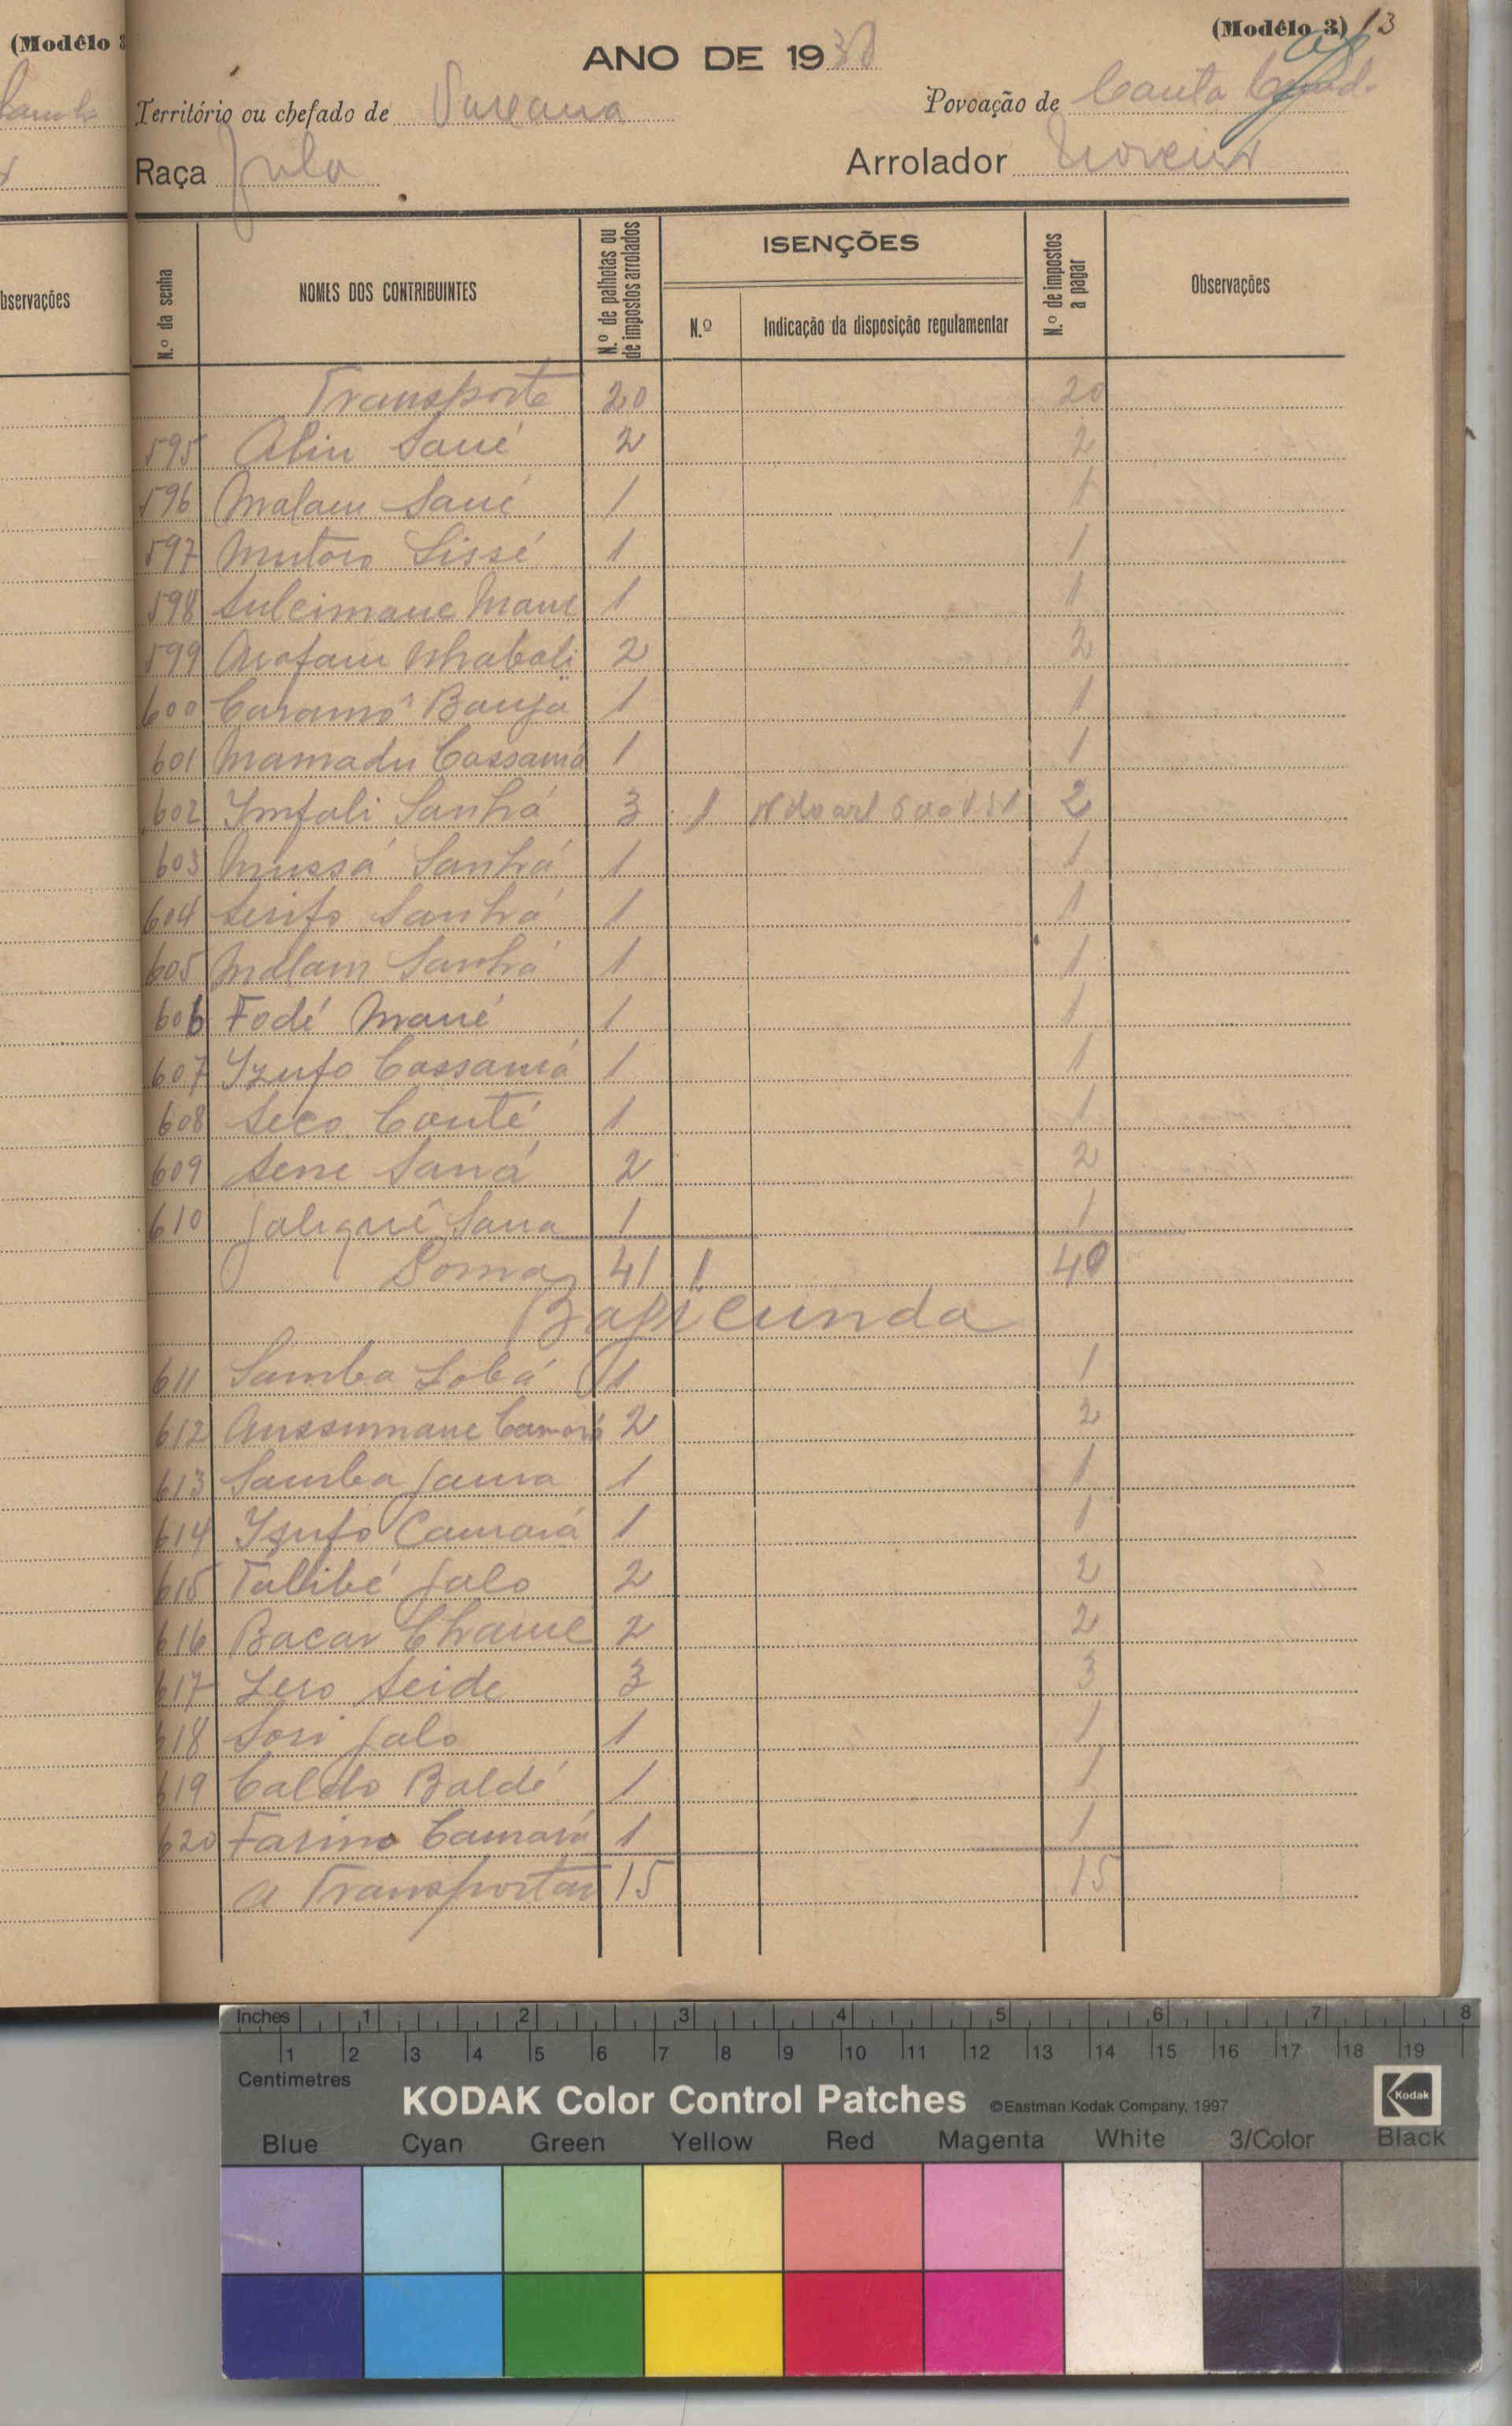 (Modêlo 3) 13
ANO DE 1938
Território ou chefado de
Povoação de Canta
Raça Fula
Arrolador Moreira
N.º da senha
NOMES DOS CONTRIBUINTES
N.º de palhotas ou de impostos arrolados
ISENÇÕES
N.º
Indicação da disposição regulamentar
N.º de impostos a pagar
Observações
Transporte 20 20
595 Aliu Sané 2 2
596 Malam Sané 1 1
597 Mutaro Sissé 1 1
598 Suleimane Mane 1 1
599 Arafam 2 2
600 Caramô 1 1
601 Mamadu Cassamá 1 1
602 Ymfali Sanhá 3 1 do art 2
603 Mussá Sanhá 1 1
604 Serifo Sanhá 1 1
605 Malam Sanhá 1 1
606 Fodé Mané 1 1
607 Yzufo Cassamá 1 1
608 Seco Conté 1 1
609 Sene Saná 2 2
610 Sana 1 1
Soma 41 1 40
611 Samba Lobá 1 1
612 Aussumane Camará 2 2
613 Samba Jaura 1 1
614 Yzufo Camará 1 1
615 Talibé Jalo 2 2
616 Bacar Chamé 2 2
617 Seide 3 3
618 Sori Jalo 1 1
619 Baldé 1 1
620 Camará 1 1
A Transportar 15 15
(Modêlo
bservações
Inches 1 2 3 4 5 6 7 8
1 2 3 4 5 6 7 8 9 10 11 12 13 14 15 16 17 18 19
Centimetres
KODAK Color Control Patches ©Eastman Kodak Company, 1997 Kodak
Blue Cyan Green Yellow Red Magenta White 3/Color Black